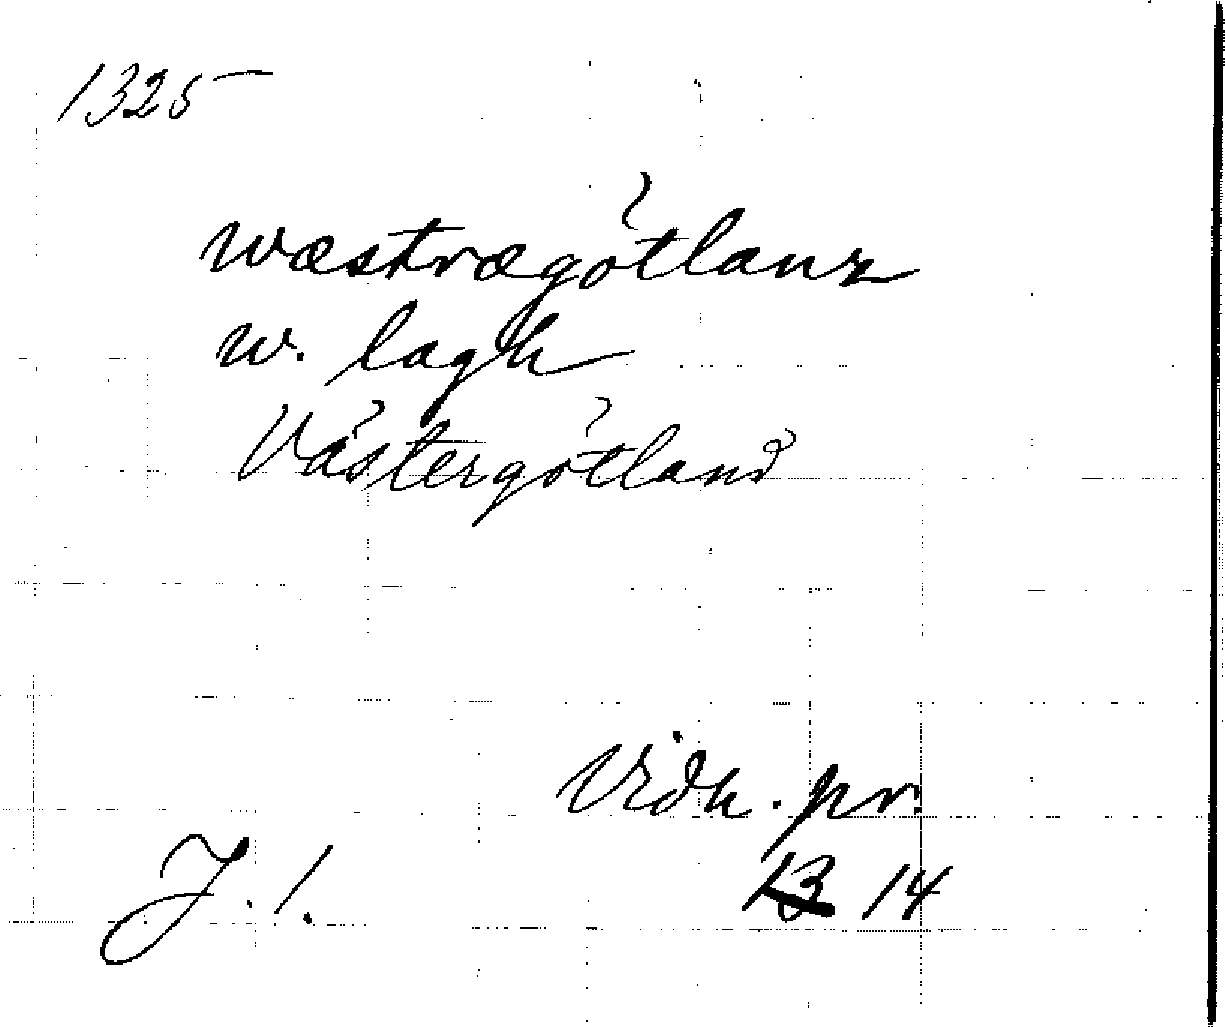 1325
wæstrægötlanz
w. lagh
Västergötland
Vidh. pr.
13 14
J. 1.